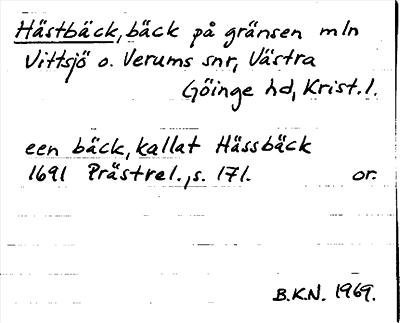 Hästbäck, bäck på gränsen mln
Vittsjö o. Verums snr, Västra
Göinge hd, Krist. l.
een bäck, kallat Hässbäck
1691 Prästrel., s. 171. or.
B.K.N. 1969.